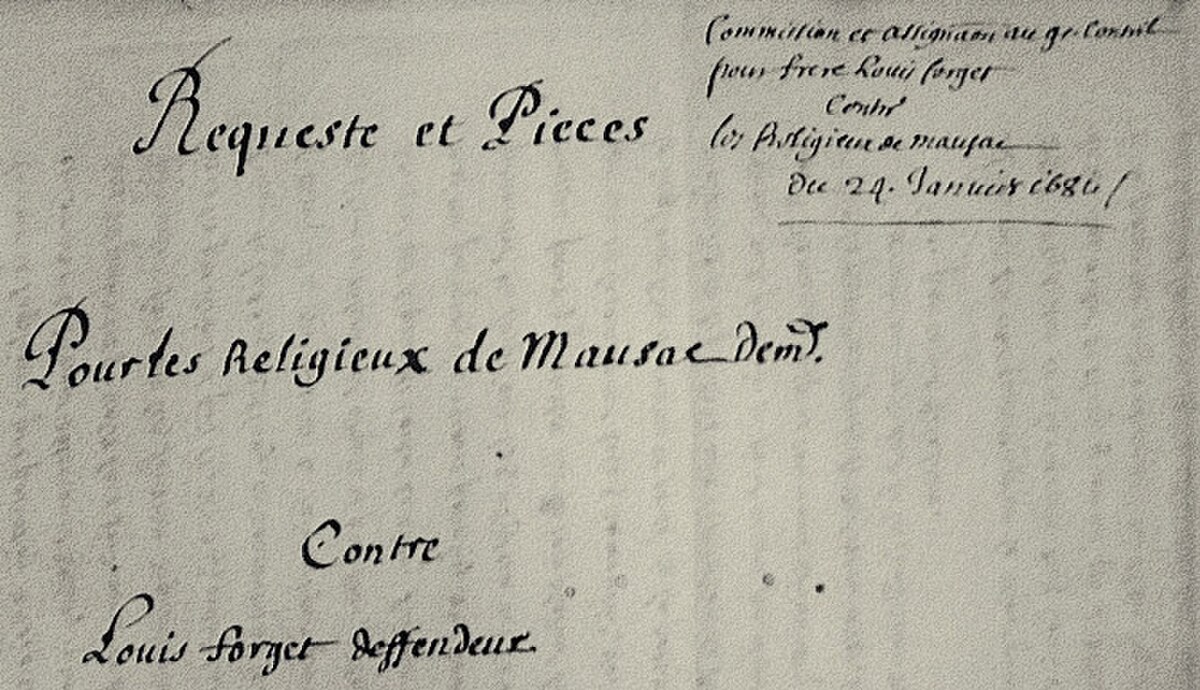 Commission et assignaōn au gr. Conseil
pour frere Louis forget
Contre
les Religieux de mausac
Du 24. Januier 1684
Requeste et Pieces
Pour les Religieux de Mausac Demrs.
Contre
Louis forget deffendeur.